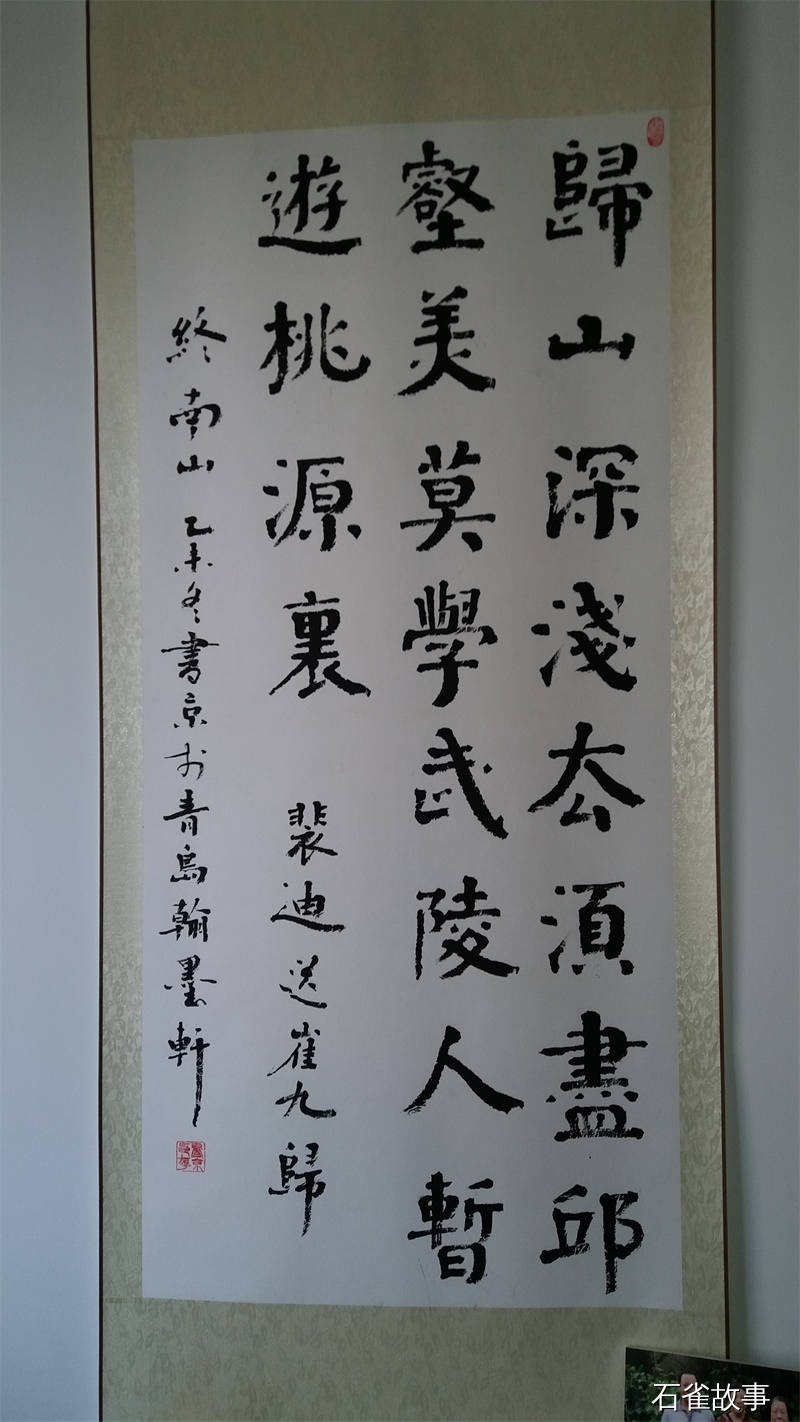 歸山深淺去須盡邱
壑美莫學武陵人暫
遊桃源裏 裴迪送崔九歸
終南山 乙未冬書京於青島翰墨軒
石雀故事